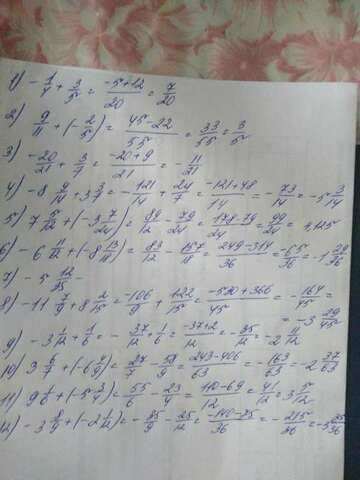 1) -1/4 + 3/5 = (-5+12)/20 = 7/20
2) 9/11 + (-2/5) = (45-22)/55 = 33/55 = 3/5
3) -20/21 + 3/7 = (-20+9)/21 = -11/21
4) -8 9/14 + 3 3/7 = -121/14 + 24/7 = (-121+48)/14 = -73/14 = -5 3/14
5) 7 5/12 + (-3 7/24) = 89/12 - 79/24 = (178-79)/24 = 99/24 = 1,125
6) -6 11/12 + (-8 13/18) = 83/12 - 157/18 = (249-314)/36 = -65/36 = -1 29/36
7) -5 12/35 -
8) -11 7/9 + 8 2/15 = -106/9 + 122/15 = (-530+366)/45 = -164/45 =
= -3 29/45
9) -3 1/12 + 1/6 = -37/12 + 1/6 = (-37+2)/12 = -35/12 = -2 11/12
10) 3 6/7 + (-6 4/9) = 27/7 - 58/9 = (243-406)/63 = -163/63 = -2 37/63
11) 9 1/6 + (-5 3/4) = 55/6 - 23/4 = (110-69)/12 = 41/12 = 3 5/12
12) -3 8/9 + (-2 1/12) = -35/9 - 25/12 = (-140-75)/36 = -215/36 = -5 35/36